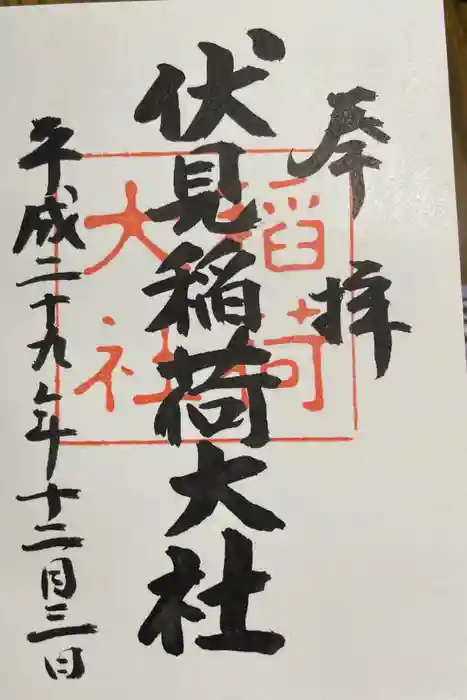 奉拝
伏見稲荷大社
稲荷
大社
平成二十九年十二月三日